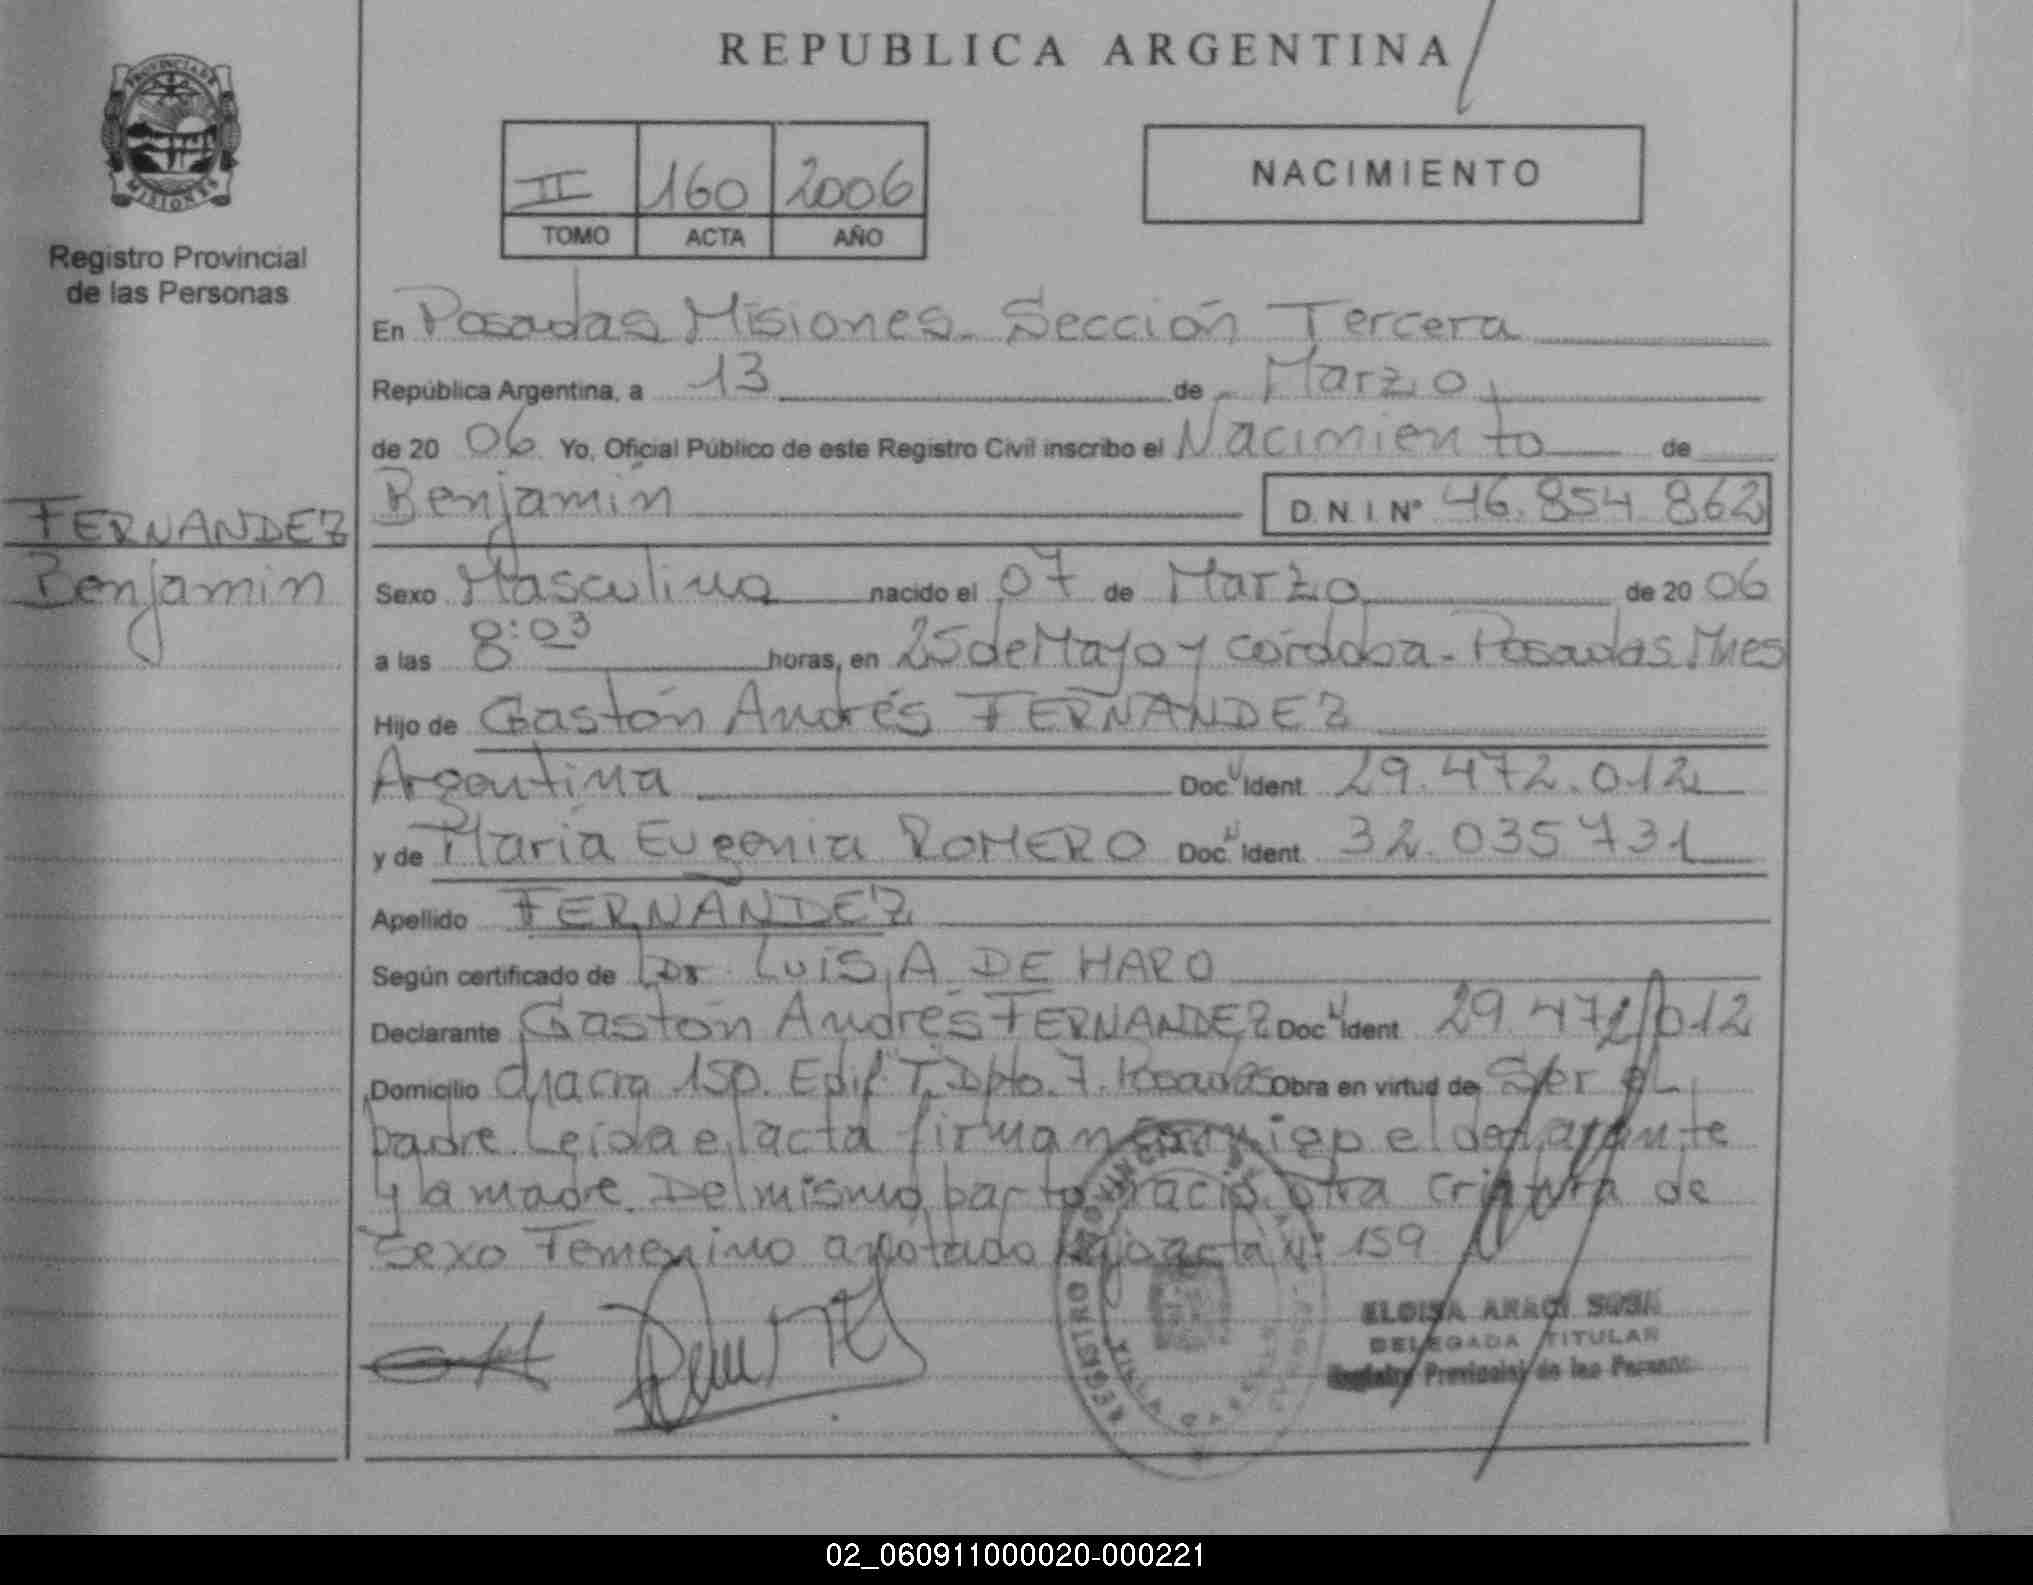 REPUBLICA ARGENTINA
PROVINCIA DE
MISIONES
Registro Provincial
de las Personas
II 160 2006
TOMO ACTA AÑO
NACIMIENTO
En Posadas Misiones. Sección Tercera
República Argentina, a 13 de Marzo
de 20 06 Yo, Oficial Público de este Registro Civil inscribo el Nacimiento de
Benjamín D.N.I. Nº 46.854.862
FERNANDEZ
Benjamin
Sexo Masculino nacido el 07 de Marzo de 20 06
a las 8:03 horas, en 25 de Mayo y córdoba - Posadas Mnes
Hijo de Gastón Andrés FERNANDEZ
Argentina Doc. Ident. 29.472.012
y de María Eugenia ROMERO Doc. Ident. 32.035.731
Apellido FERNANDEZ
Según certificado de Dr. LUIS A. DE HARO
Declarante Gastón Andrés FERNANDEZ Doc. Ident. 29.472.012
Domicilio chacra 150. Edif. T. Dpto. 7. Posadas Obra en virtud de Ser el
padre. Leída el acta firman conmigo el declarante
y la madre. Del mismo parto nació otra criatura de
Sexo Femenino anotado bajo acta Nº 159
ELOISA ARACI SOSA
DELEGADA TITULAR
Registro Provincial de las Personas
REGISTRO PROVINCIAL DE LAS
02_060911000020-000221